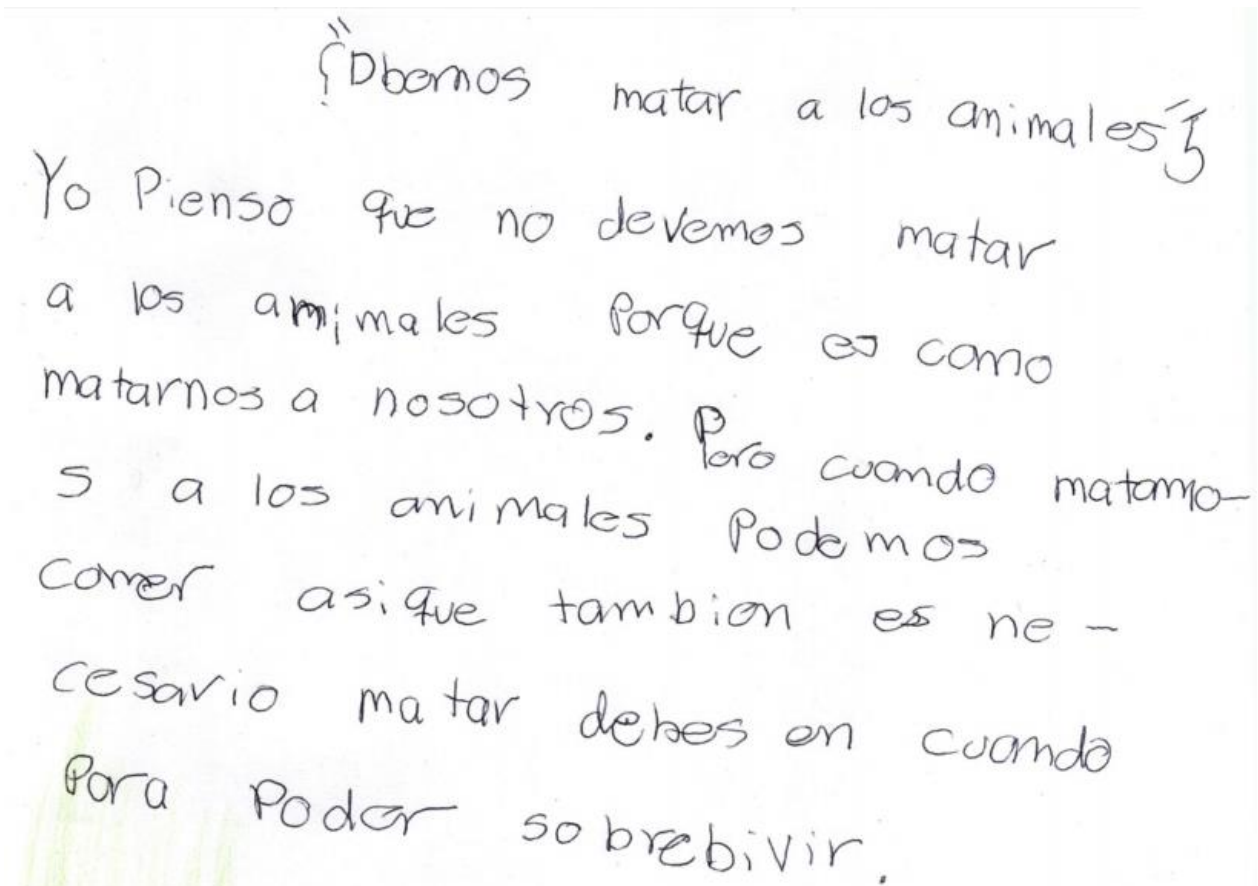 ¿"Dbemos matar a los animales"?
Yo Pienso que no devemos matar
a los amimales Porque es como
matarnos a nosotros. Pero cuando matamo-
s a los animales Podemos
comer asique tambien es ne-
cesario matar debes en cuando
Para Poder sobrebivir.